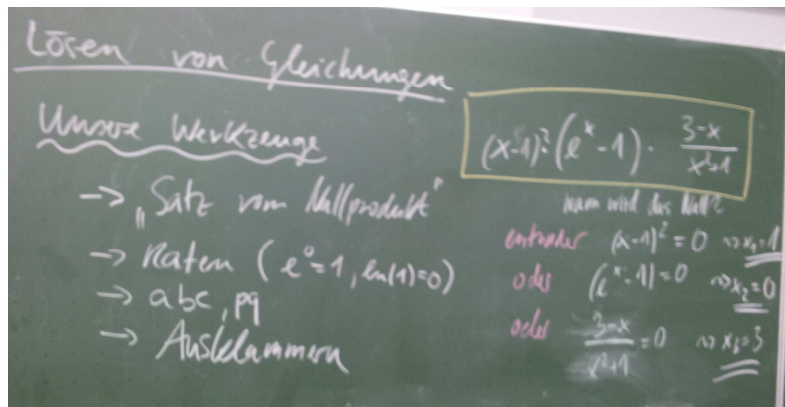 Lösen von Gleichungen
Unsere Werkzeuge
→ „Satz vom Nullprodukt"
→ Raten (e⁰=1, ln(1)=0)
→ abc, pq
→ Ausklammern
(x-1)²·(eˣ-1)· (3-x)/(x²+1)
wann wird das Null?
entweder (x-1)²=0 ⇝ x₁=1
oder (eˣ-1)=0 ⇝ x₂=0
oder (3-x)/(x²+1)=0 ⇝ x₃=3